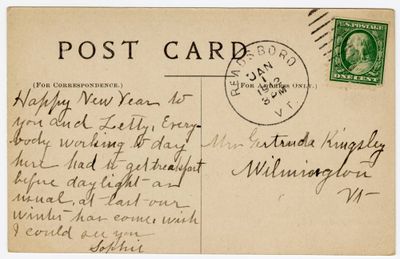 POST CARD
(FOR CORRESPONDENCE.)
(FOR ADDRESS ONLY.)
READSBORO
JAN
1
8 PM
VT.
U.S. POSTAGE
ONE CENT
Happy New Year to
you and Letty. Every-
body working to day
here had to get breakfast
before daylight as
usual, at last our
winter has come, wish
I could see you
Sophie
Mrs Gertrude Kingsley
Wilmington
Vt